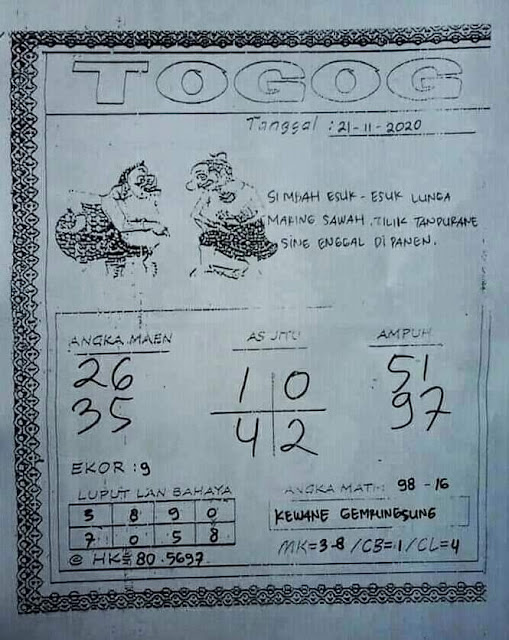 TOGOG
Tanggal : 21-11-2020
SI MBAH ESUK - ESUK LUNGA
MARING SAWAH. TILIK TANDURANE
SING ENGGAL DI PANEN.
ANGKA MAEN
26
35
AS JITU
1 0
4 2
AMPUH
51
97
EKOR : 9
LUPUT LAN BAHAYA
5 8 9 0
7 0 5 8
@ HK= 80.5697
ANGKA MATI: 98 - 16
KEWANE GEMRUNGSUNG
MK=3-8 / CB=1 / CL=4